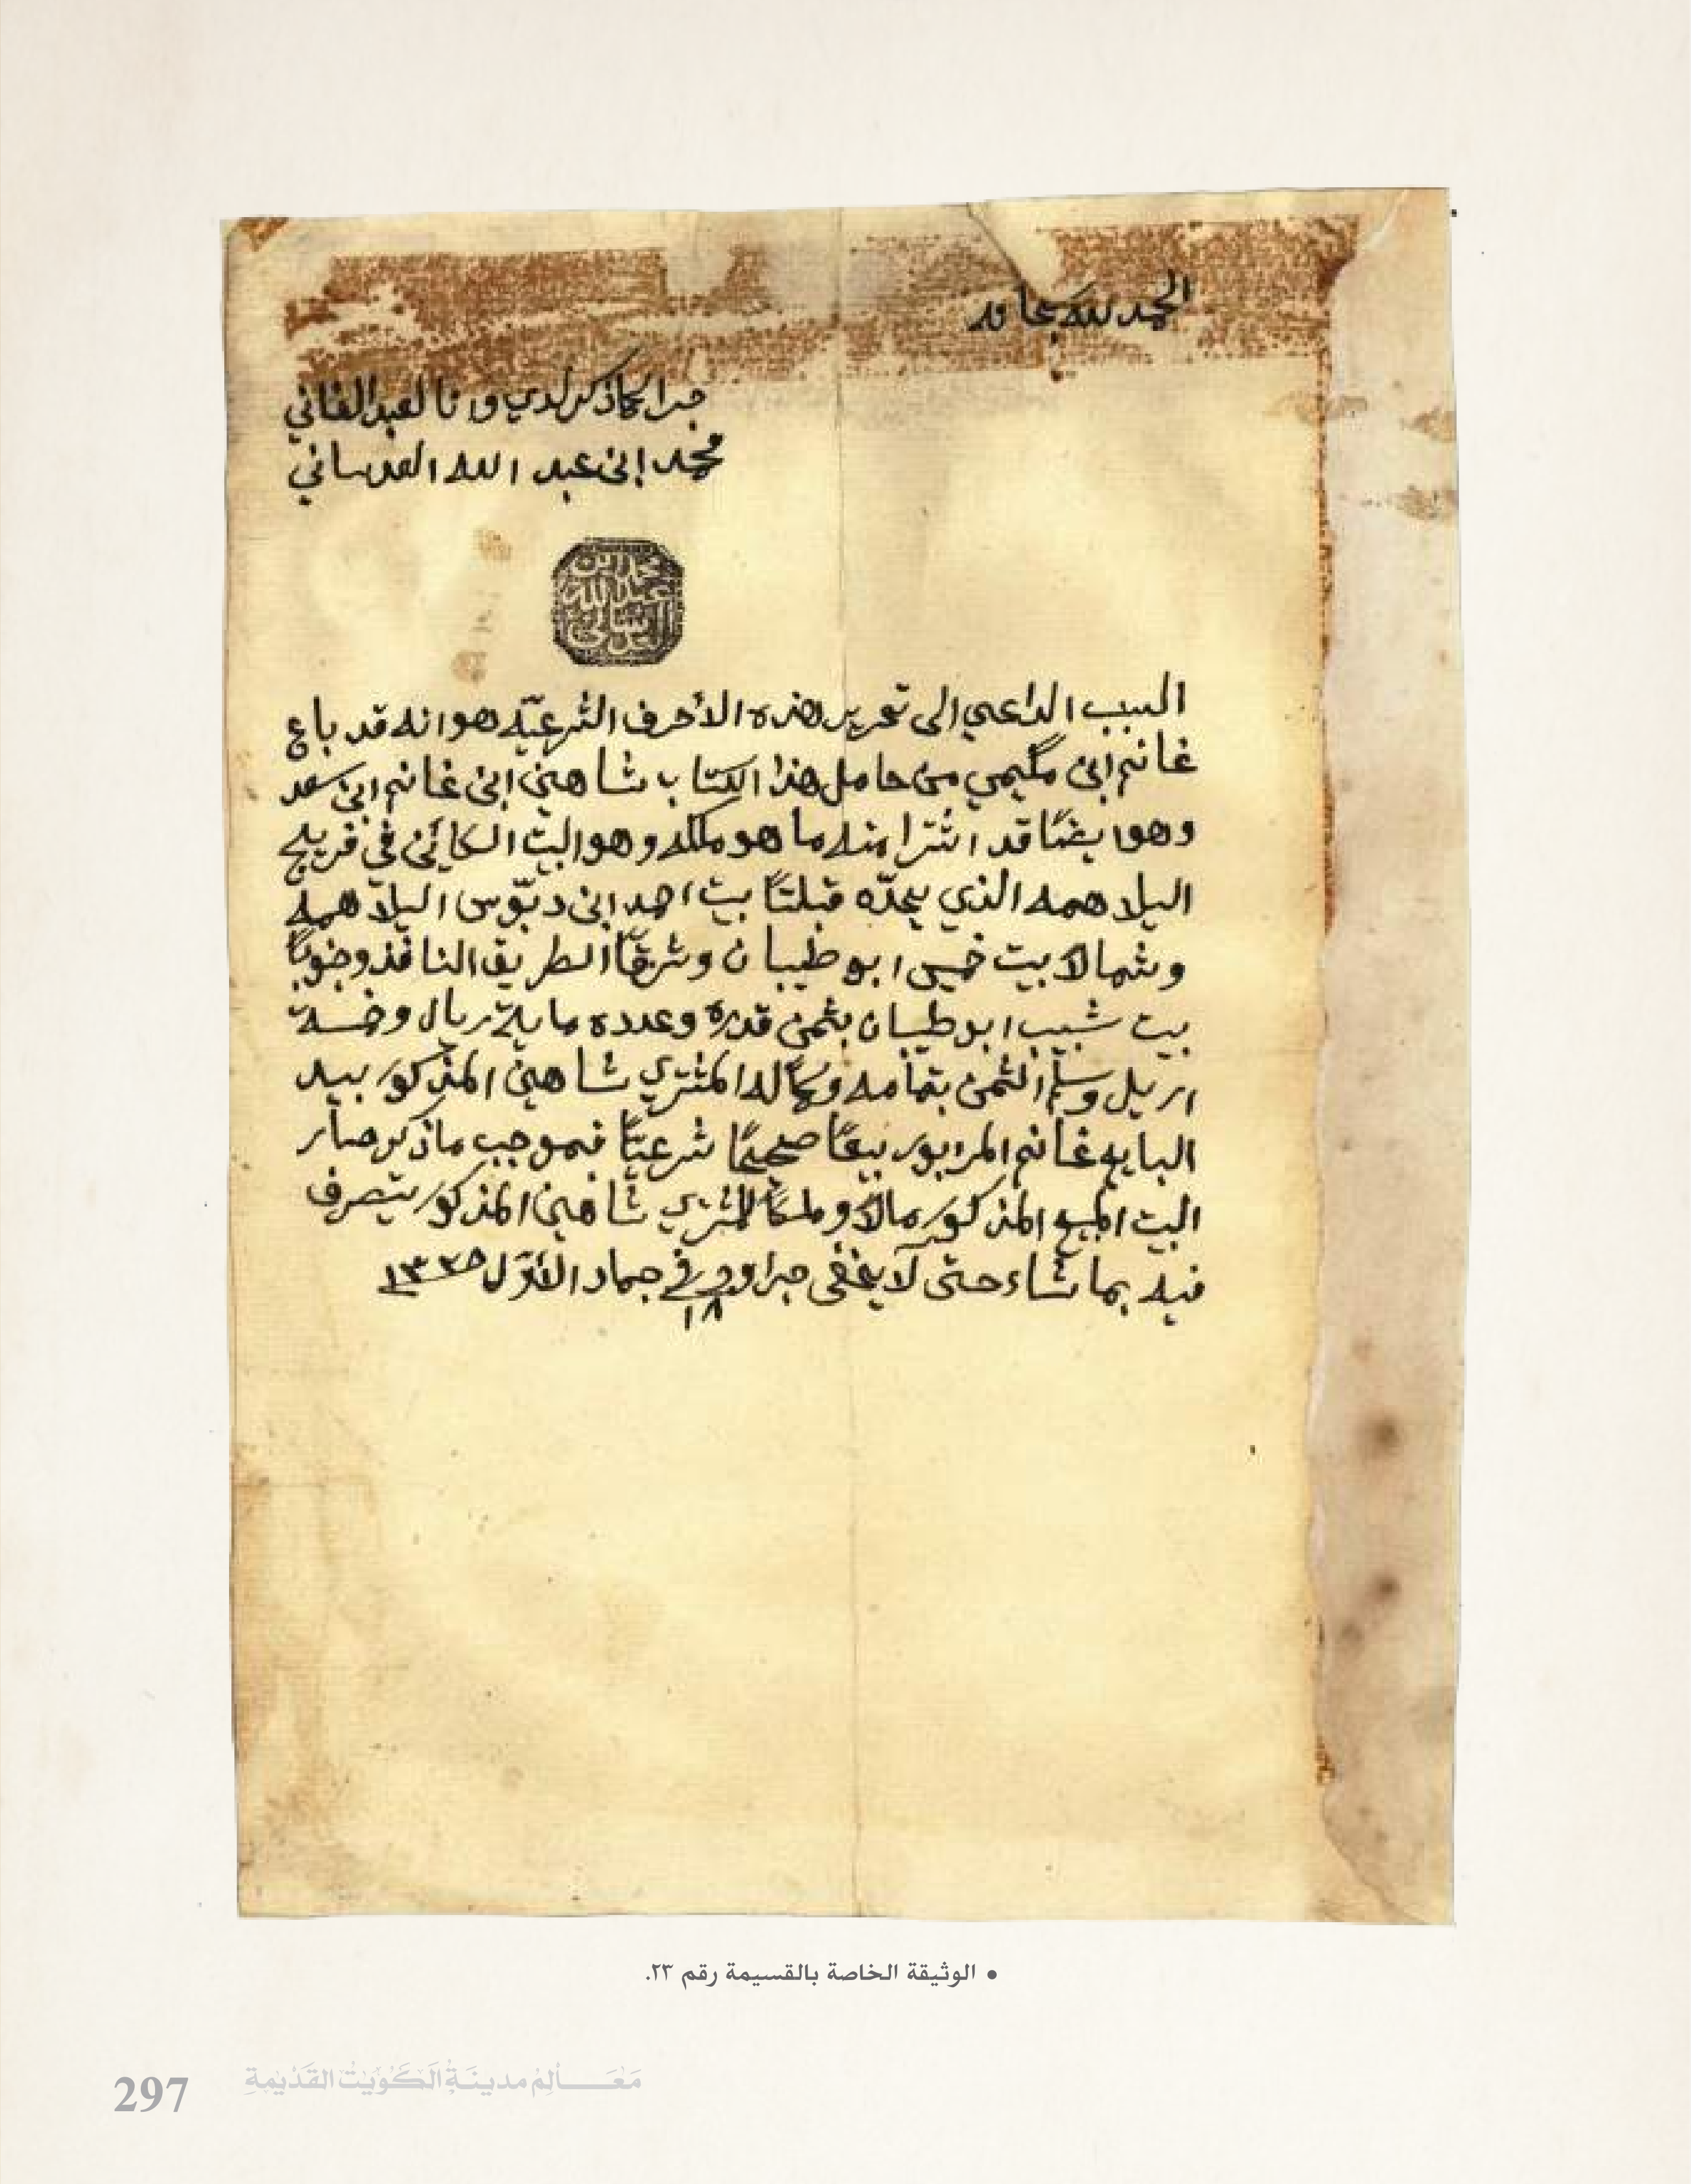 الحمد لله سبحانه
جرا كما ذكر لدي وانا العبد الفاني
محمد ابن عبد الله العدساني
السبب الداعي الى تحرير هذه الاحرف الشرعيّه هو انه قد باع
غانم ابن مگيمي من حامل هذا الكتاب شاهين ابن غانم ابن سعد
وهو ايضًا قد اشترا منه ما هو ملكه وهو البيت الكائن في فريج
البلاهمه الذي يحدّه قبلتًا بيت احمد ابن دبّوس البلاهمه
وشمالاً بيت خميس ابو طيبان وشرقًا الطريق النافذ وجنوبًا
بيت شبيب ابو طيبان بثمن قدره وعدده ماية ريال وخمسة
اريل وسلم الثمن بتمامه وكماله المشتري شاهين المذكور بيد
البايع غانم المزبور بيعًا صحيحًا شرعيًا فبموجب ما ذكر صار
البيت المبيع المذكور مالاً وملكًا للمشتري شاهين المذكور يتصرف
فيه بما شاء حتى لا يخفى جرا وحرر في جماد الأوّل ١٣٣٥
١٨
• الوثيقة الخاصة بالقسيمة رقم ٢٣.
297 مَعَالِم مدينَة الكُوَيت القَدْيمةِ